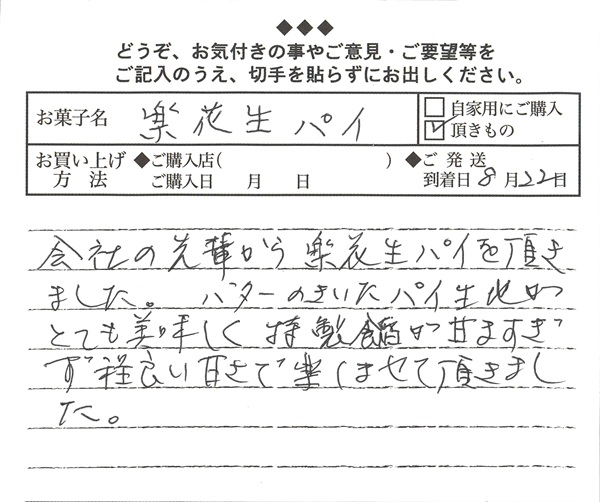 ◆◆◆
どうぞ、お気付きの事やご意見・ご要望等を
ご記入のうえ、切手を貼らずにお出しください。
お菓子名 楽花生パイ □自家用にご購入
☑頂きもの
お買い上げ方法 ◆ご購入店( ) ◆ご発送
ご購入日 月 日 到着日 8月22日
会社の先輩から楽花生パイを頂き
ました。バターのきいたパイ生地が
とても美味しく特製餡が甘すぎ
ず程良い甘さで楽しませて頂きまし
た。